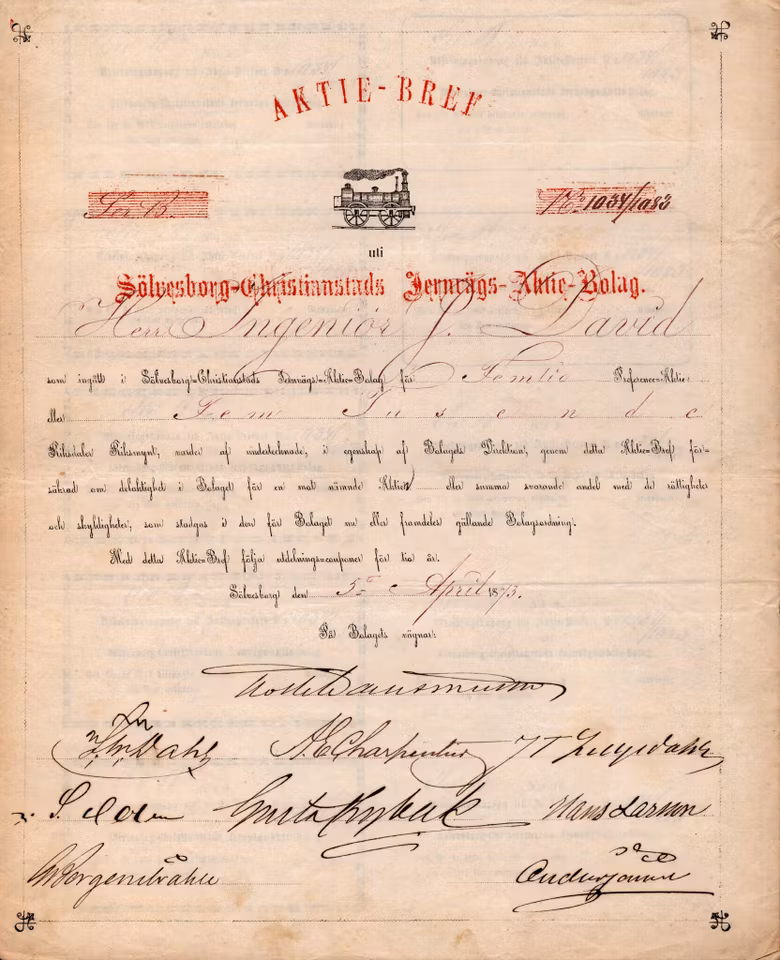 AKTIE-BREF
Litt B.
No 1034/1083
uti
Sölvesborg-Christianstads Jernvägs-Aktie-Bolag.
Herr Ingeniör J. David
som ingått i Sölvesborg-Christianstads Jernvägs-Aktie-Bolag för Femtio Preference-Aktie
eller Fem Tusende
Riksdaler Riksmynt, varder af undertecknade, i egenskap af Bolagets Direktion, genom detta Aktie-Bref för-
säkrad om delaktighet i Bolaget för en mot nämnde Aktier eller summa svarande andel med de rättigheter
och skyldigheter, som stadgas i den för Bolaget nu eller framdeles gällande Bolagsordning.
Med detta Aktie-Bref följa utdelnings-couponer för tio år.
Sölvesborg den 5te April 1873.
På Bolagets vägnar:
Dahl A E Charpentier
Hans Larson